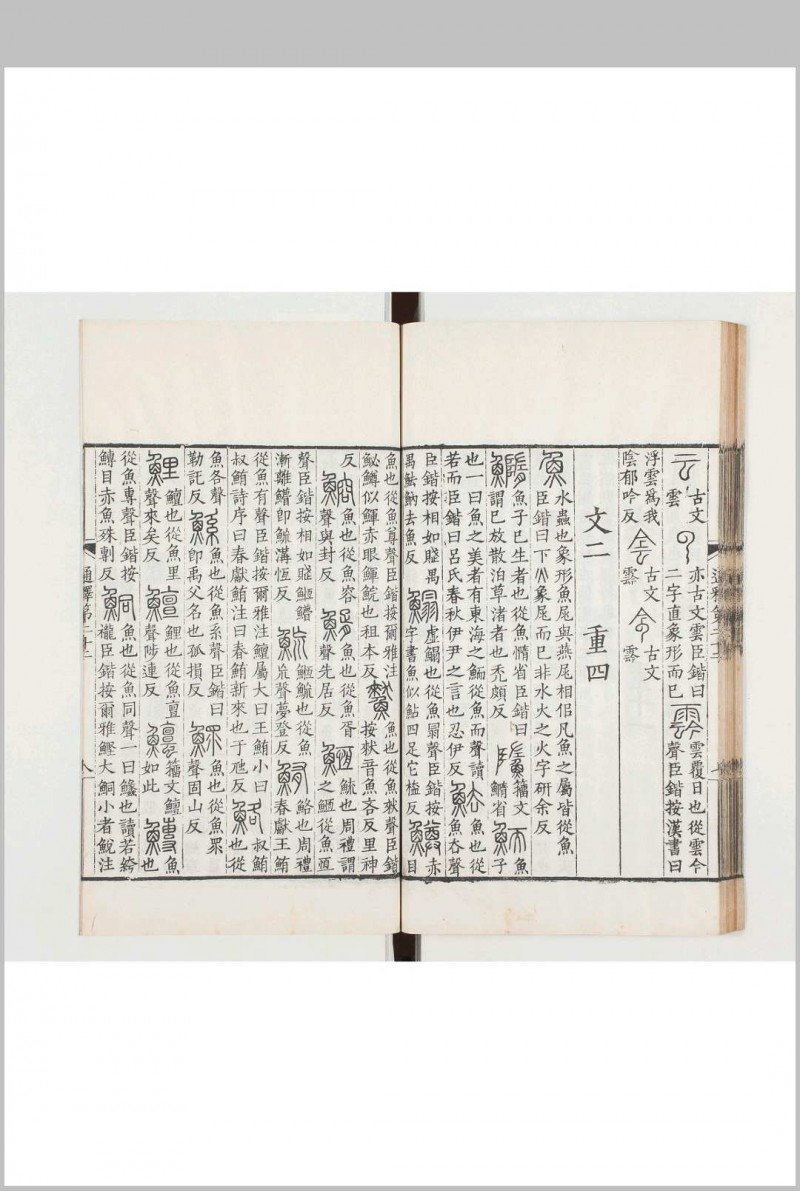 云
古文
雲
亦古文雲臣鍇曰
二字直象形而已
霒
雲覆日也從雲今
聲臣鍇按漢書曰
浮雲為我
陰郁吟反
古文
霒
古文
霒
文二 重四
魚
水蟲也象形魚尾與燕尾相侣凡魚之屬皆從魚
臣鍇曰下火象尾而已非水火之火字研余反
鰖
魚子已生者也從魚憜省臣鍇曰
謂已放散泊草渚者也禿頗反
籒文
鰖省
鮞
魚
魚子
也一曰魚之美者有東海之鮞從魚而聲讀
若而臣鍇曰呂氏春秋伊尹之言也忍伊反
魼
魚也從
魚 聲
臣鍇按相如賦禺
禺魼魶去魚反
鰨
虛鰨也從魚 聲臣鍇按
字書魚似鮎四足它榼反
鱒
赤
目
魚也從魚尊聲臣鍇按爾雅注
鮅鱒似鯶赤眼鯶鯇也租本反
魚也從魚 聲臣鍇
按 音魚吝反里神
反
鰫
魚也從魚容
聲與封反
魚也從魚胥
聲先居反
䱭
鮛也周禮謂
之䱭從魚恆
聲臣鍇按相如賦䱭䲛
漸離䲛即鮛溝恆反
䱭鮛也從魚
㐬聲夢登反
鮪
鮥也周禮
春獻王鮪
從魚有聲臣鍇按爾雅注鱣屬大曰王鮪小曰
叔鮪詩序曰春獻鮪注曰春鮪新來也于 反
鮥
叔鮪
也從
魚各聲
勒託反
鯀
魚也從魚系聲臣鍇曰
即禹父名也孤損反
鰥
魚也從魚眔
聲固山反
鯉
鱣也從魚里
聲來矣反
鱣
鯉也從魚亶
聲陟連反
籒文鱣
如此
鱄
魚
也
從魚專聲臣鍇按
鱄目赤魚殊剸反
鮦
魚也從魚同聲一曰鱶也讀若絝
襱臣鍇按爾雅鰹大鮦小者鮵注
通釋第二十二